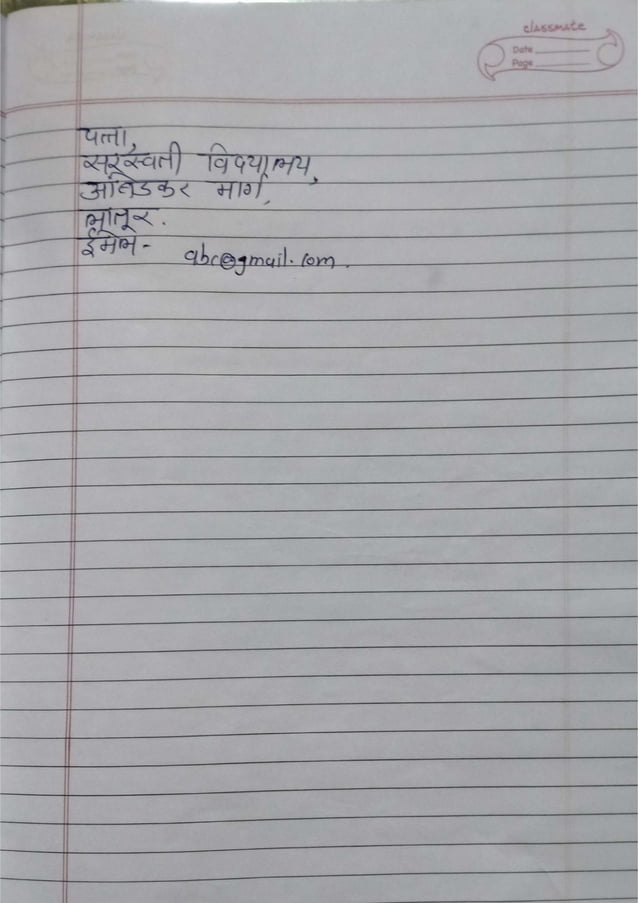 classmate
Date
Page
पत्ता,
सरस्वती विद्यालय,
आंबेडकर मार्ग,
लातूर.
ईमेल-
abc@gmail.com.